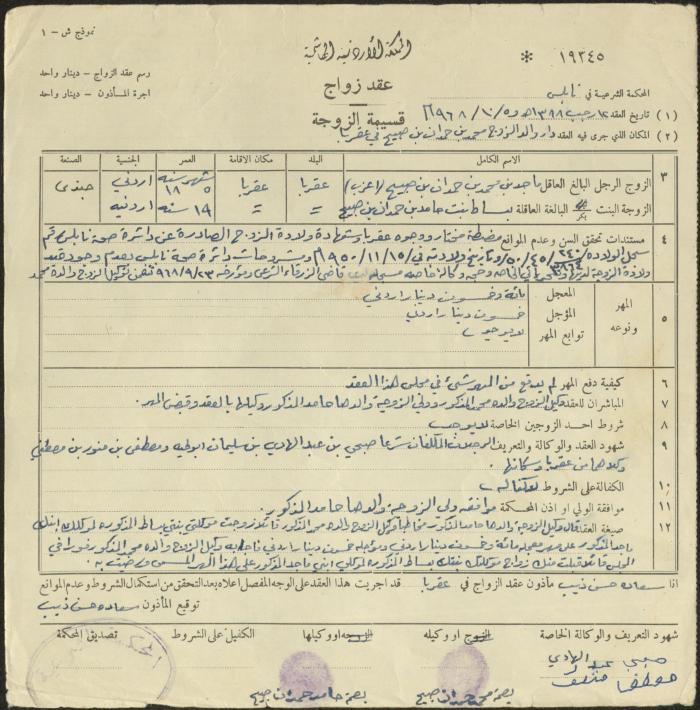 نموذج ش - ١
المملكة الأردنية الهاشمية
١٩٣٤٥ *
رسم عقد الزواج - دينار واحد
اجرة المأذون - دينار واحد
عقد زواج
قسيمة الزوجة
المحكمة الشرعية في نابلس
(١) تاريخ العقد ١٢ رجب ١٣٨٨ ه ٥/١٠/١٩٦٨م
(٢) المكان الذي جرى فيه العقد دار والد الزوج محمد بن حمدان بن صبيح في عقربا
الاسم الكامل البلد مكان الاقامة العمر الجنسية الصنعة
٣ الزوج الرجل البالغ العاقل ماجد بن محمد بن حمدان بن صبيح (اعزب) عقربا عقربا ١٨ سنة اردني جندي
الزوجة البنت البكر البالغة العاقلة بنت حامد بن حمدان بن صبيح = = ١٩ سنة اردنيه
٤ مستندات تحقق السن وعدم الموانع مضبطة مختار ووجوه عقربا وشهادة ولادة الزوج الصادرة عن دائرة صحة نابلس رقم
سجل الولادة وتاريخ ولادته في ١٥/١١/١٩٥٠ دائرة صحة نابلس بعدم وجود قيد
ولادة الزوجة قاضي الزرقاء الشرعي ٢٣/٩/٩٦٨ والده محمد
٥ المهر ونوعه
المعجل مائة وخمسون دينار اردني
المؤجل خمسون دينار اردني
توابع المهر لا يوجد
٦ كيفية دفع المهر لم يدفع من المهر شيئ في مجلس هذا العقد
٧ المباشران للعقد وكيل الزوج والده محمد المذكور وولي الزوجة والدها حامد المذكور بالعقد وقبض المهر.
٨ شروط احد الزوجين الخاصة لا يوجد
٩ شهود العقد والوكالة والتعريف الرجلان المكلفان شرعا صبحي بن عبد الهادي بن سليمان ومصطفى بن منور بن مصطفى
وكلاهما من عقربا وسكانها.
١٠ الكفالة على الشروط
١١ موافقة الولي او اذن المحكمة موافقة ولي الزوجة والدها حامد المذكور.
١٢ صيغة العقد قال وكيل الزوجة والدها حامد المذكور مخاطبا وكيل الزوج والده محمد المذكور قائلا زوجت موكلتي بنتي المذكورة لموكلك ابنك
ماجد المذكور على مهر معجله مائة وخمسون دينار اردني ومؤجله خمسون دينار اردني فاجابه وكيل الزوج والده محمد المذكور فورا في
المجلس قائلا قبلت منك زواج موكلتك بنتك المذكورة لموكلي ابني ماجد المذكور على هذا المهر المسمى ورضيت به.
انا سعاده حسن ذيب مأذون عقد الزواج في عقربا قد اجريت هذا العقد على الوجه المفصل اعلاه بعد التحقق من استكمال الشروط وعدم الموانع
توقيع المأذون سعاده حسن ذيب
شهود التعريف والوكالة الخاصة الزوج او وكيله الزوجة او وكيلها الكفيل على الشروط تصديق المحكمة
صبحي عبد الهادي
مصطفى منور
بصمة محمد حمدان صبيح
بصمة حامد حمدان صبيح